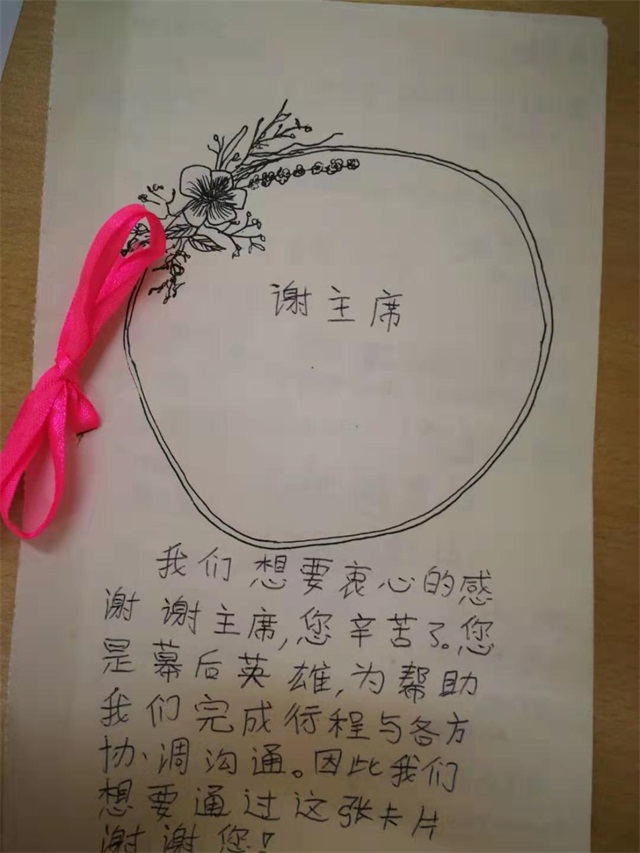 谢主席
我们想要衷心的感
谢谢主席,您辛苦了。您
是幕后英雄,为帮助
我们完成行程与各方
协调沟通。因此我们
想要通过这张卡片
谢谢您!